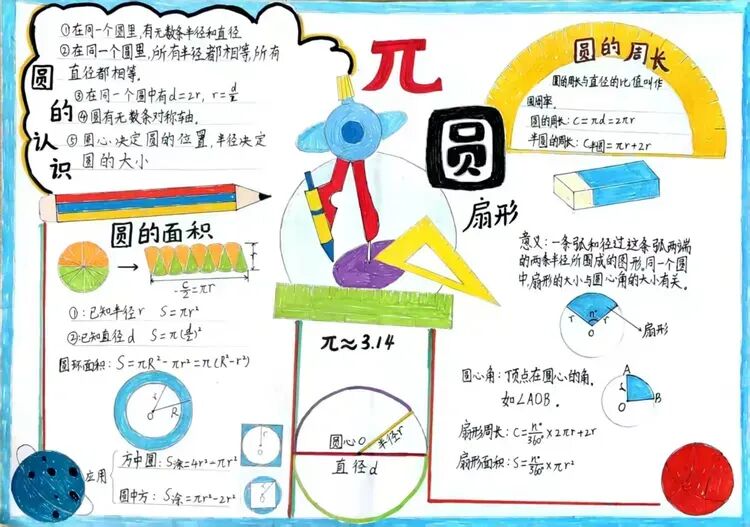 圆的认识
①在同一个圆里,有无数条半径和直径
②在同一个圆里,所有半径都相等,所有
直径都相等。
③在同一个圆中有d=2r, r=d/2
④圆有无数条对称轴。
⑤圆心决定圆的位置,半径决定
圆的大小
π
圆
扇形
圆的周长
圆的周长与直径的比值叫作
圆周率。
圆的周长: C=πd=2πr
半圆的周长: C半圆=πr+2r
圆的面积
r
C/2=πr
①:已知半径r S=πr²
②:已知直径d S=π(d/2)²
圆环面积: S=πR²-πr²=π(R²-r²)
r
R
O
应用
方中圆: S涂=4r²-πr²
圆中方: S涂=πr²-2r²
r
π≈3.14
圆心O
半径r
直径d
意义:一条弧和径过这条弧两端
的两条半径所围成的图形。同一个圆
中,扇形的大小与圆心角的大小有关。
r
n°
r
O
扇形
圆心角:顶点在圆心的角。
如∠AOB。
A
r
O
B
扇形周长: C=n°/360°×2πr+2r
扇形面积: S=n°/360°×πr²